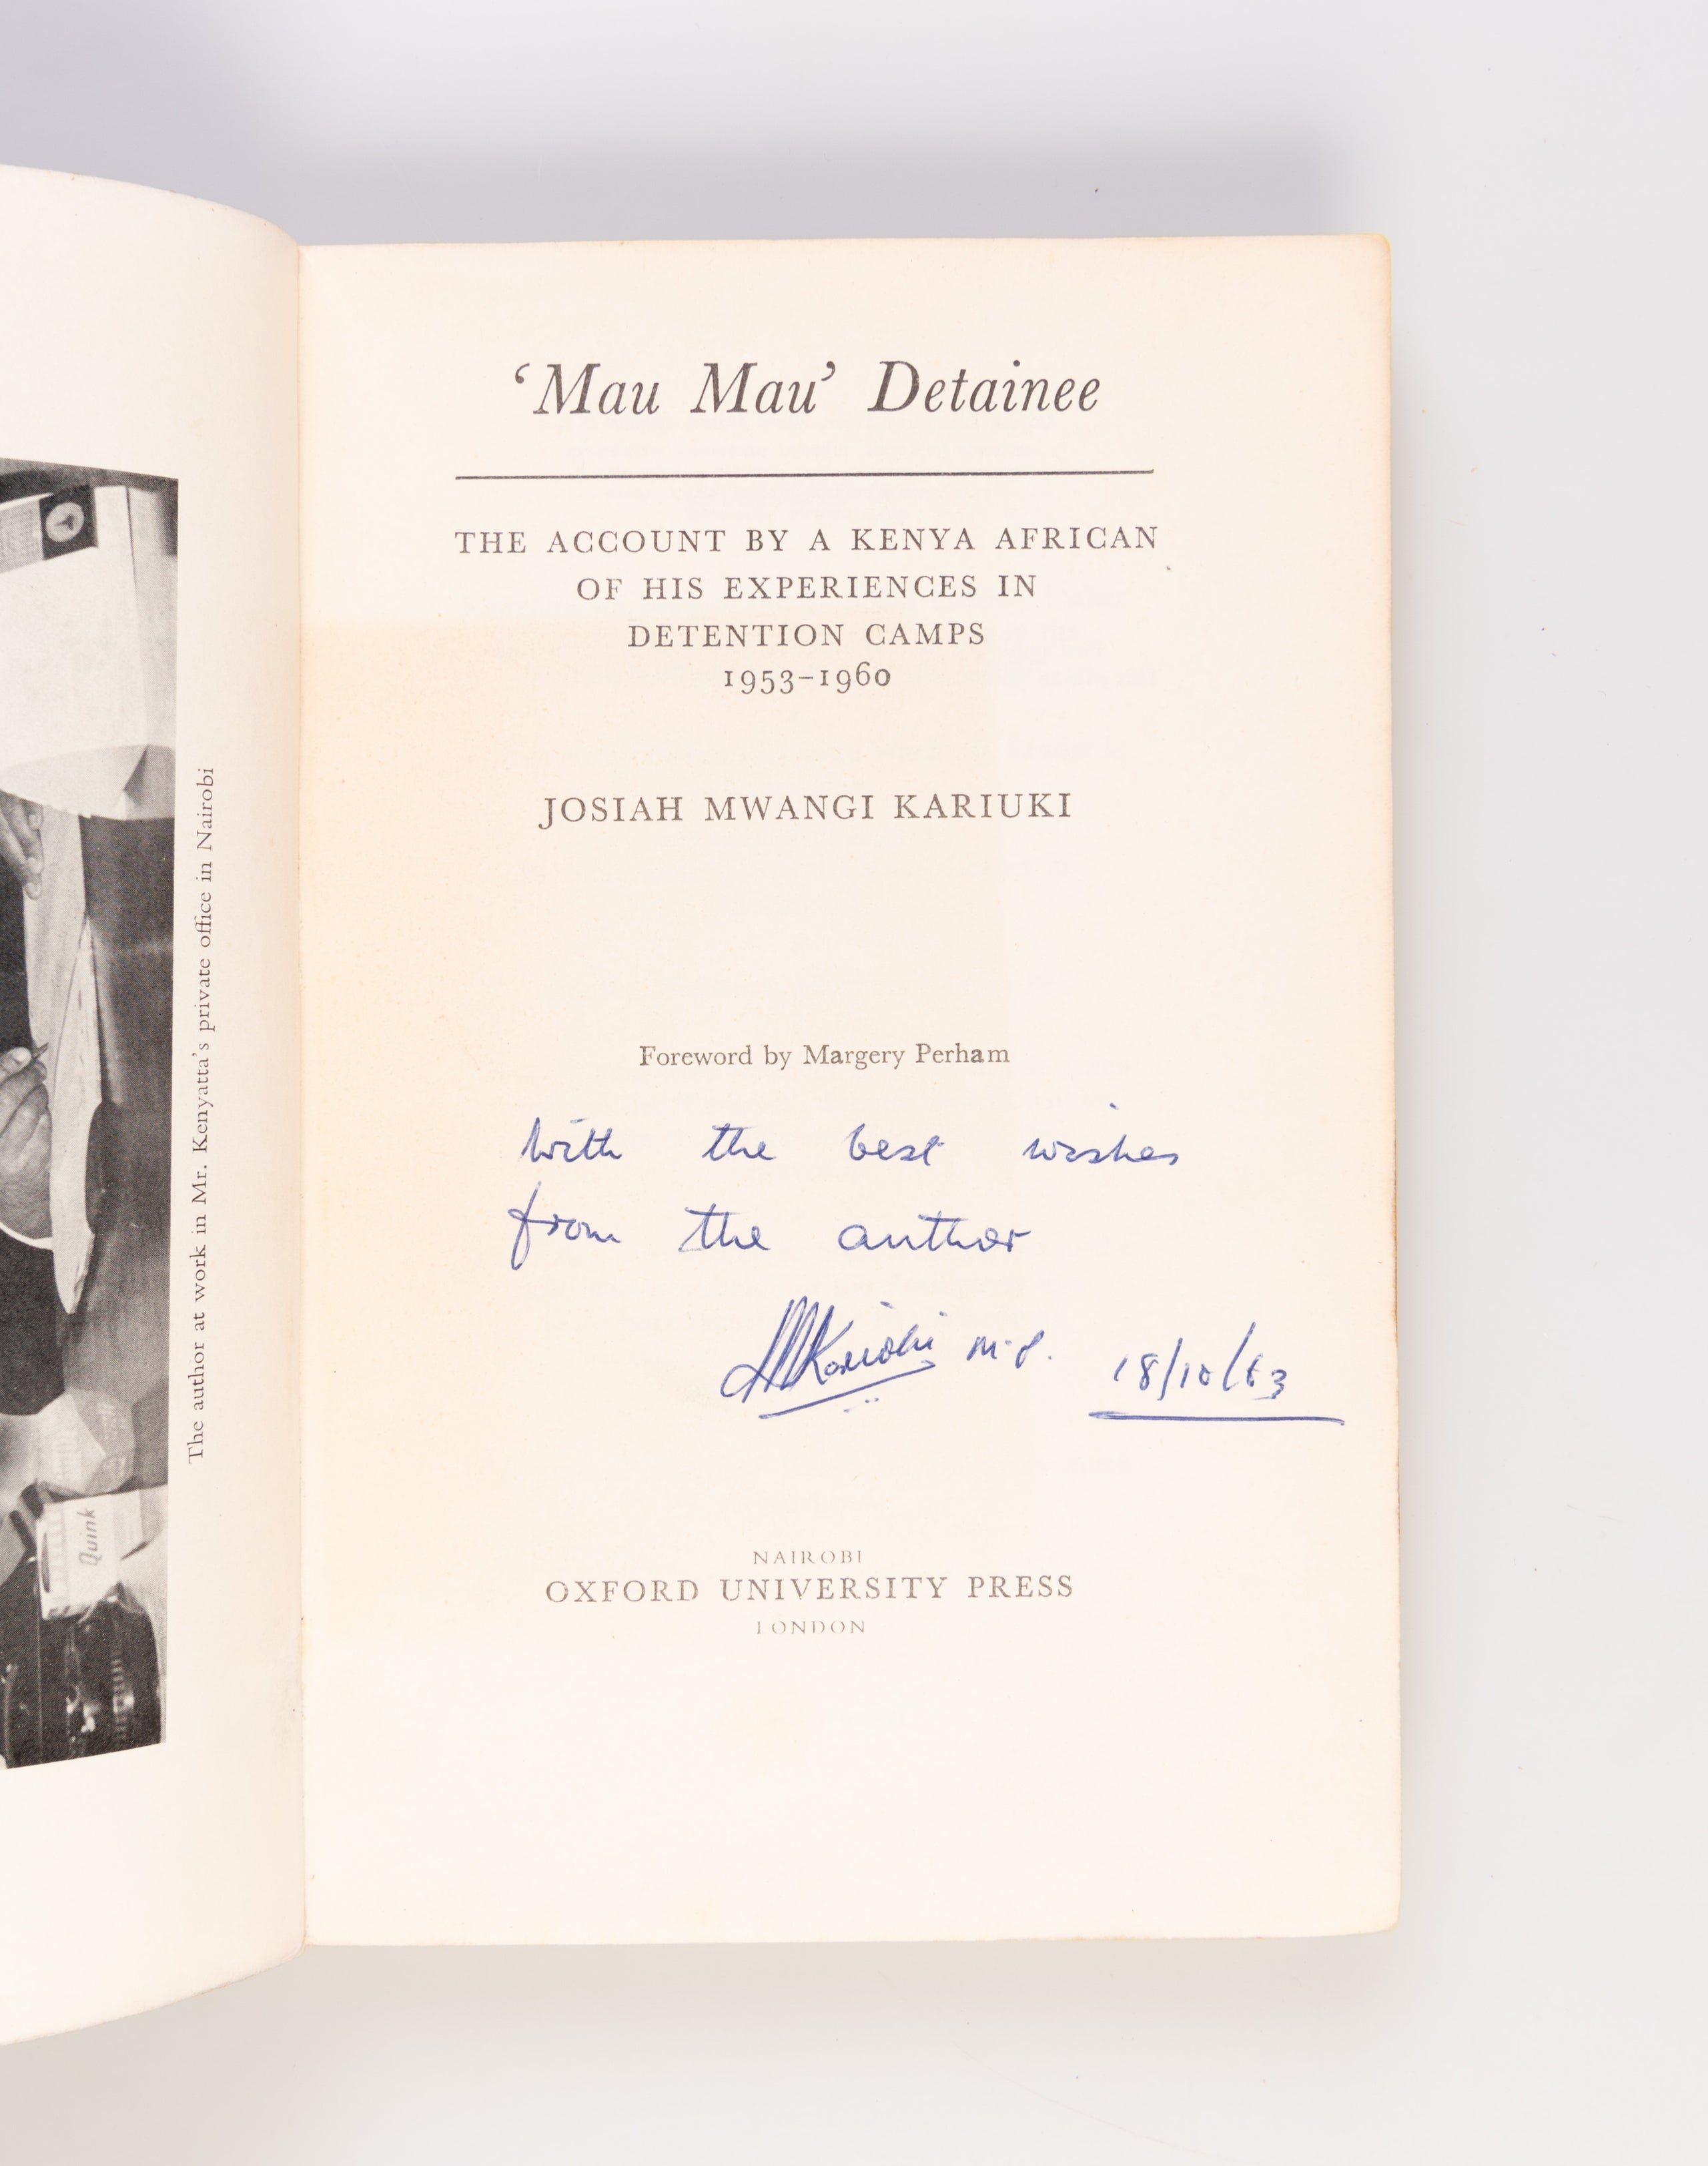 Quink
The author at work in Mr. Kenyatta's private office in Nairobi
‘Mau Mau’ Detainee
THE ACCOUNT BY A KENYA AFRICAN
OF HIS EXPERIENCES IN
DETENTION CAMPS
1953–1960
JOSIAH MWANGI KARIUKI
Foreword by Margery Perham
With the best wishes
from the author
JMKariuki M.P. 18/10/63
NAIROBI
OXFORD UNIVERSITY PRESS
LONDON